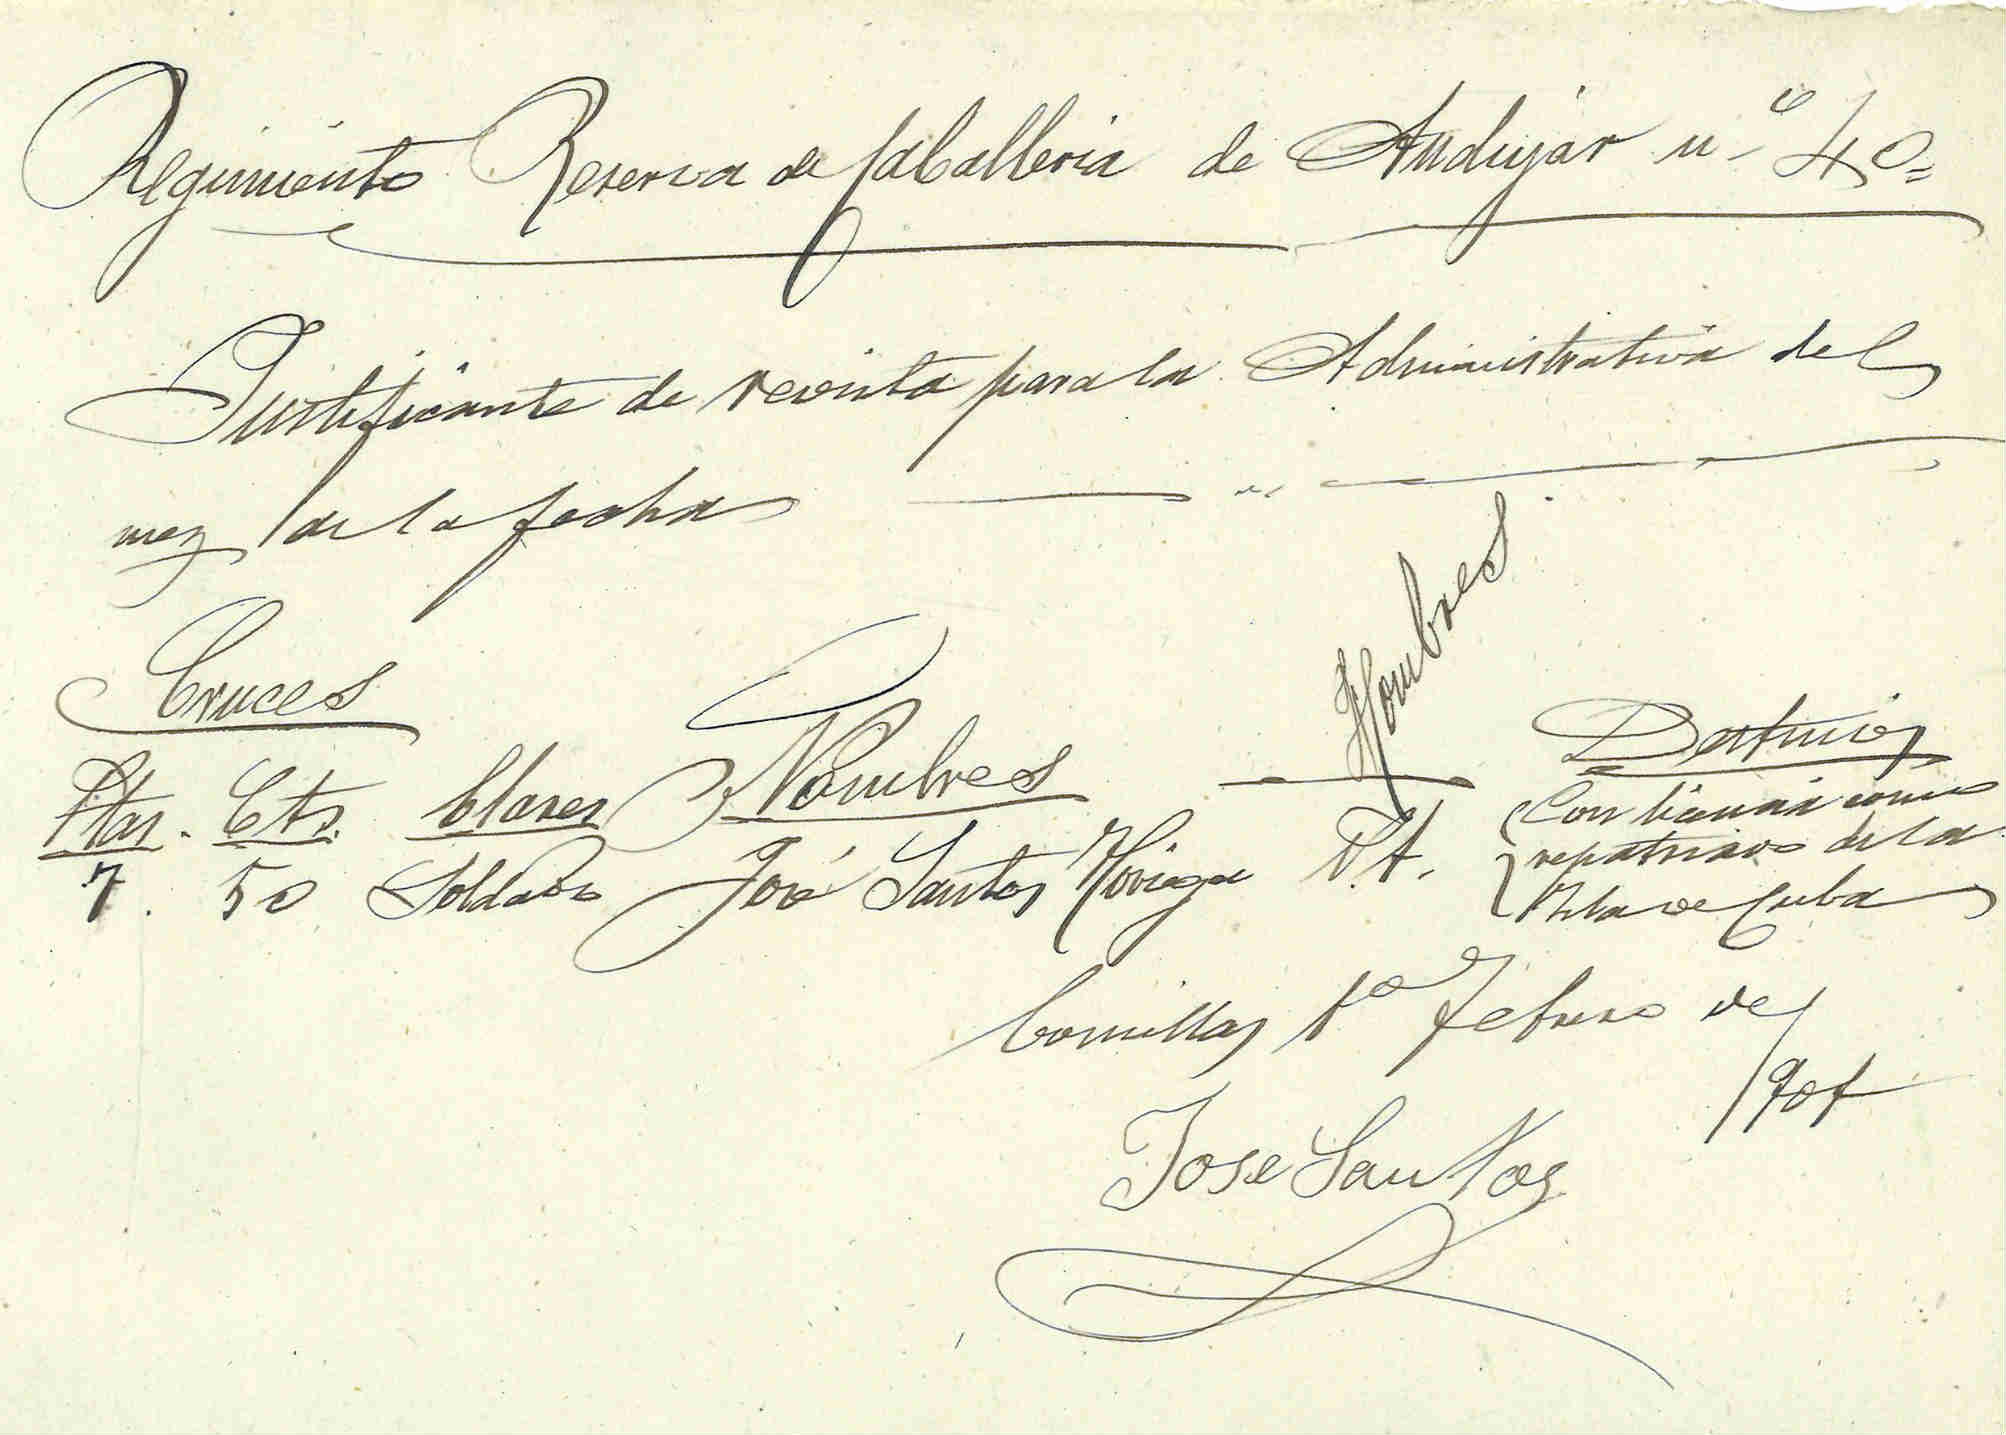 Regimiento Reserva de Caballeria de Andújar nº 40=
Justificante de revista para la Administrativa del
mez de la fecha
Cruces
Hombres
Ptas. Cts. Clases Nombres Destinos
7. 50 Soldado José Santos Noriega P.A.
Con licencia como
repatriado de la
Isla de Cuba
Comillas 1º Febrero de
1901
Jose Santos